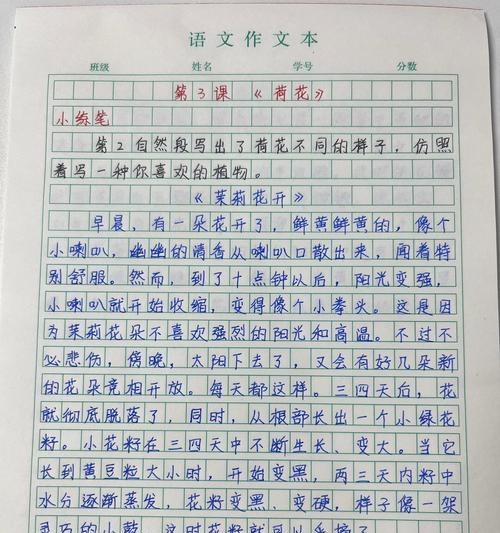 语文作文本
班级 姓名 学号 分数
第3课 《荷花》
小练笔
第2自然段写出了荷花不同的样子，仿照
着写一种你喜欢的植物。
《茉莉花开》
早晨，有一朵花开了，鲜黄鲜黄的，像个
小喇叭，幽幽的清香从喇叭口散出来，闻着特
别舒服。然而，到了十点钟以后，阳光变强，
小喇叭就开始收缩，变得像个小拳头。这是因
为茉莉花朵不喜欢强烈的阳光和高温。不过不
必悲伤，傍晚，太阳下去了，又会有好几朵新
的花朵竞相开放。每天都这样。三四天后，花
就彻底脱落了，同时，从根部长出一个小绿花
籽。小花籽在三四天中不断生长、变大。当它
长到黄豆粒大小时，开始变黑，两三天内籽中
水分逐渐蒸发，花籽变黑、变硬，样子像一架
灵巧的小鼓，这时花籽就可以采摘了